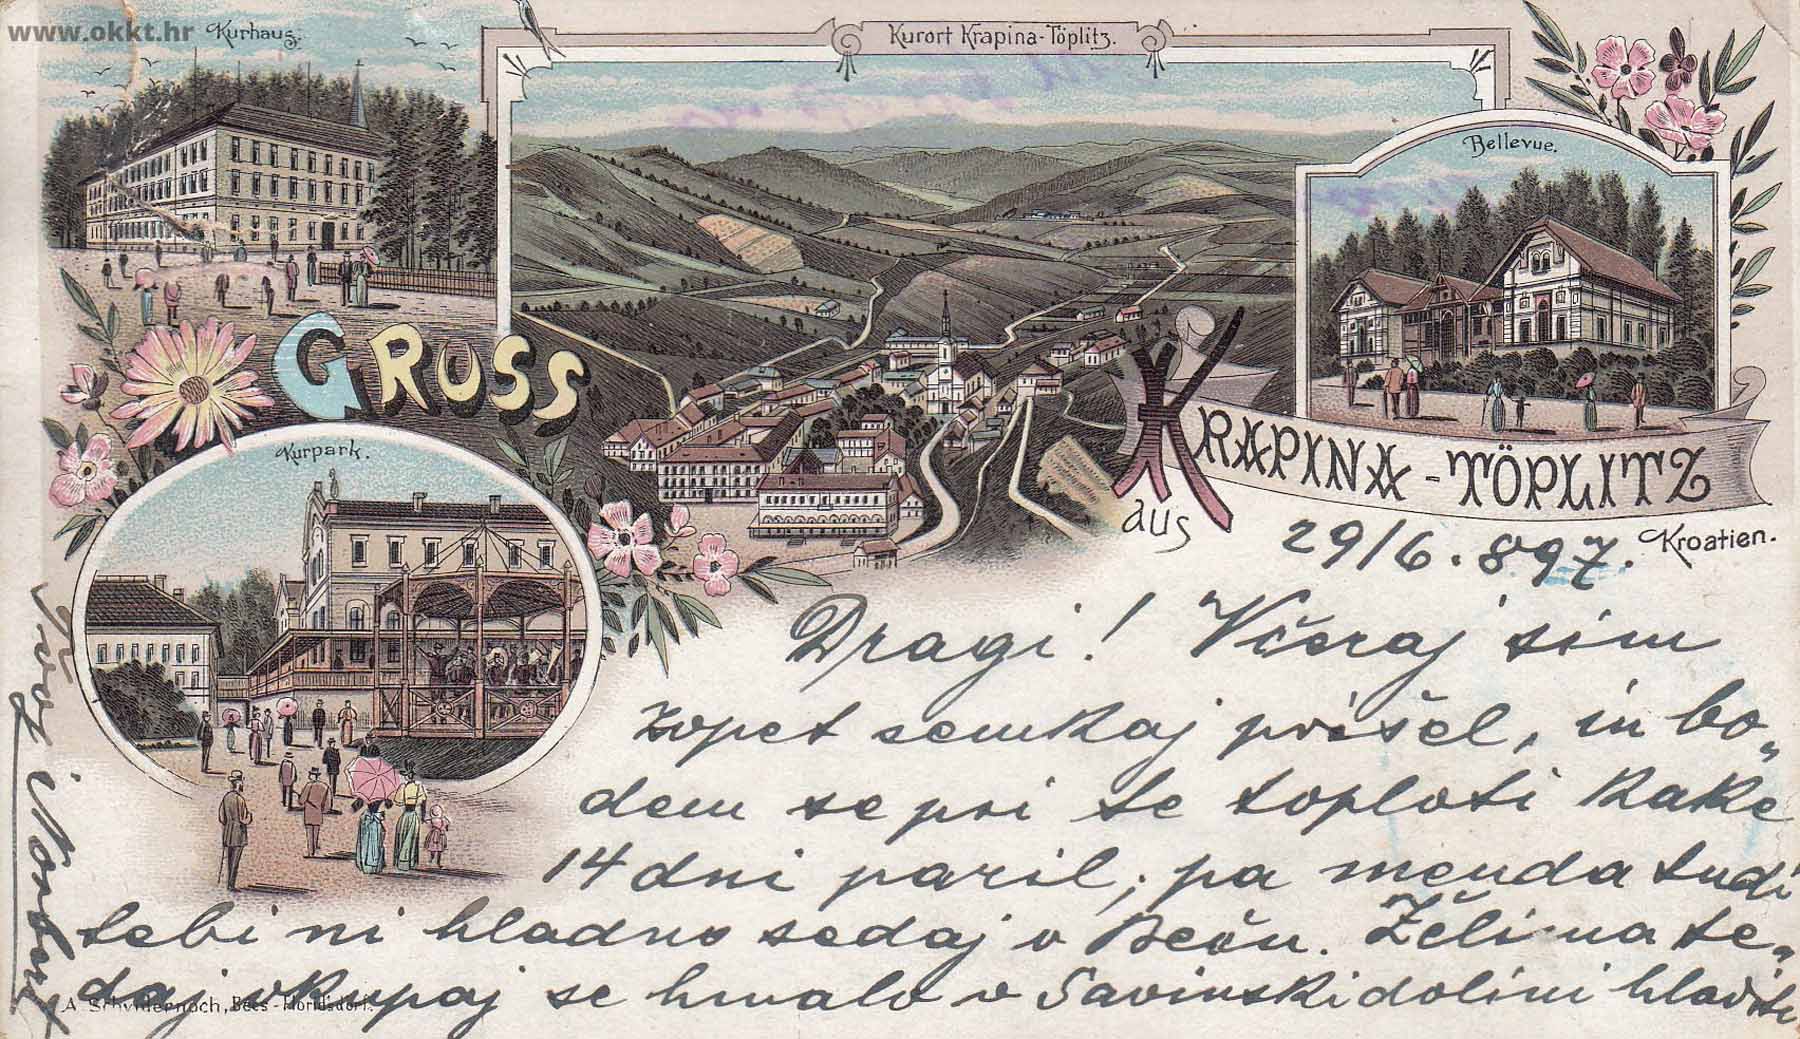 www.okkt.hr
Kurhaus.
Kurort Krapina-Töplitz.
Bellevue.
GRUSS
aus
KRAPINA-TÖPLITZ
Kroatien.
Kurpark.
29/6. 897.
Dragi! Včeraj sim
zopet semkaj prišel, in bo-
dem se pri te toploti kake
14 dni paril, pa menda tudi
tebi ni hladno sedaj v Beču. Želi na te-
daj vkupaj se hmalo v Savinski dolini hladiti
Tvoj
A. Schwidernoch, Bécs-Floridsdorf.